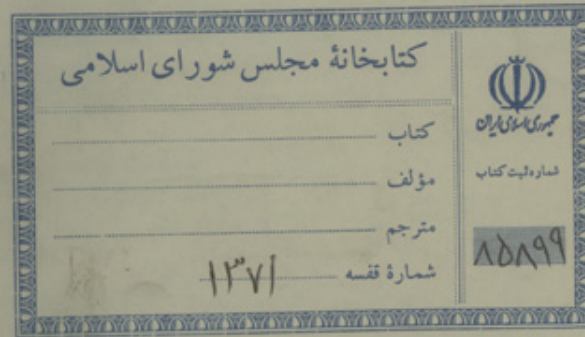 کتابخانهٔ مجلس شورای اسلامی
کتاب
مؤلف
مترجم
شمارهٔ قفسه ۱۳۷۱
جمهوری اسلامی ایران
شماره ثبت کتاب
۸۵۸۹۹